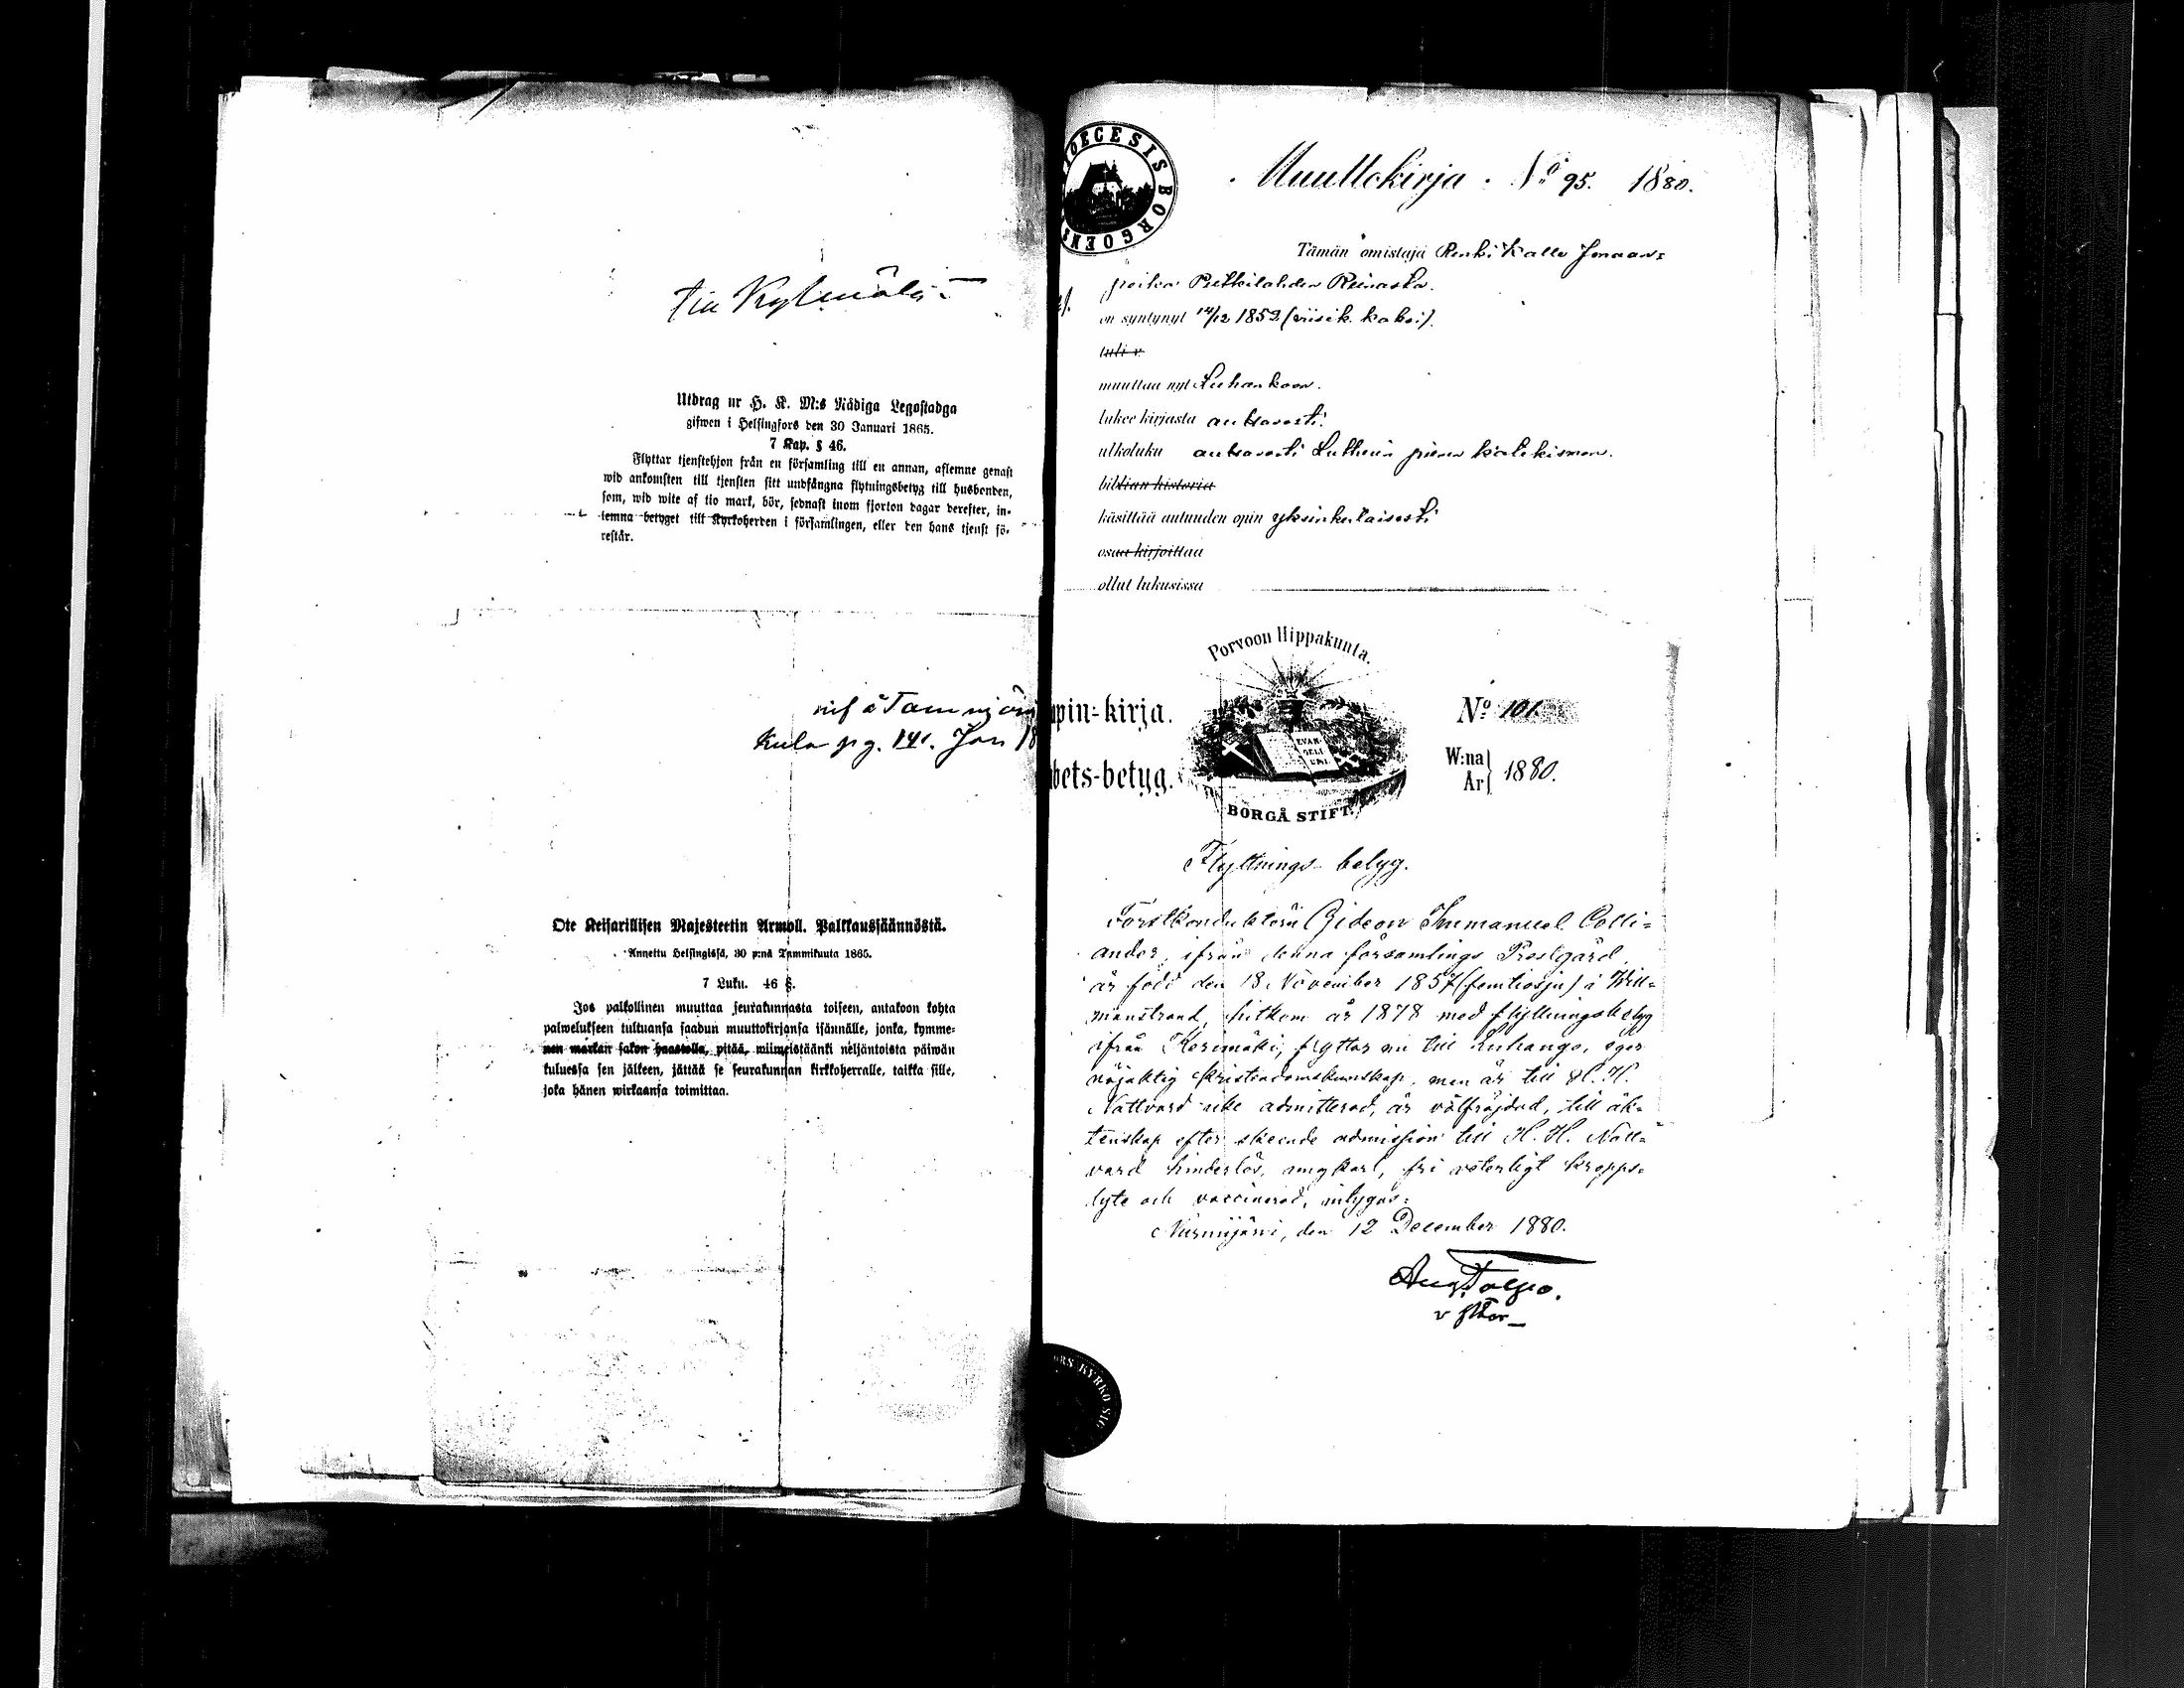 till Kylmälä
Utdrag ur H. K. M:s Nådiga Legostadga
gifwen i Helsingfors den 30 Januari 1865.
7 Kap. § 46.
Flyttar tjenstehjon från en församling till en annan, aflemne genast
wid ankomsten till tjensten sitt undfångna flytningsbetyg till husbonden,
som, wid wite af tio mark, bör, sednast inom fjorton dagar derefter, in-
lemna betyget till Kyrkoherden i församlingen, eller den hans tjenst fö-
restår.
kula pg. 141. Jan 18
Ote Keisarillisen Majesteetin Armoll. Palkkaussäännöstä.
Annettu Helsingissä, 30 p:nä Tammikuuta 1865.
7 Luku. 46 §.
Jos palkollinen muuttaa seurakunnasta toiseen, antakoon kohta
palwelukseen tultuansa saadun muuttokirjansa isännälle, jonka, kymme-
nen markan sakon haastolla, pitää, wiimeistäänki neljäntoista päiwän
kuluessa sen jälkeen, jättää se seurakunnan kirkkoherralle, taikka sille,
joka hänen wirkaansa toimittaa.
OECESIS BORGOENS
Muuttokirja. No 95. 1880.
Tämän omistaja Renki Kalle Joonaan=
poika Putkilahden Reinasta.
on syntynyt 14/12 1852 (viisik. kaksi).
tuli v.
muuttaa nyt Luhankaan.
lukee kirjasta auttavasti.
ulkoluku auttavasti Lutherin pienen katekismon.
biblian historia
käsittää autuuden opin yksinkertaisesti
osaa kirjoittaa
ollut lukusissa
Porvoon Hippakunta.
pin=kirja.
bets-betyg.
EVAN-
GELI
UMI
BORGÅ STIFT.
No 101.
W:na
År 1880.
Flyttnings-betyg.
Forstkonduktören Gideon Immanuel Colli=
ander, ifrån denna församlings Prestgård,
är född den 18 November 1857 (femtiosju) i Will=
manstrand, hitkom år 1878 med flyttningsbetyg
ifrån Kerimäki, flyttar nu till Luhango, eger
nöjaktig kristendomskunskap, men är till H. H.
Nattvard icke admitterad, är välfräjdad, till äk=
tenskap efter skeende admission till H. H. Natt=
vard hinderlös, ungkarl, fri veterligt kropps=
lyte och vaccinerad, intygas:
Nurmijärvi, den 12 December 1880.
KYRKO SIG